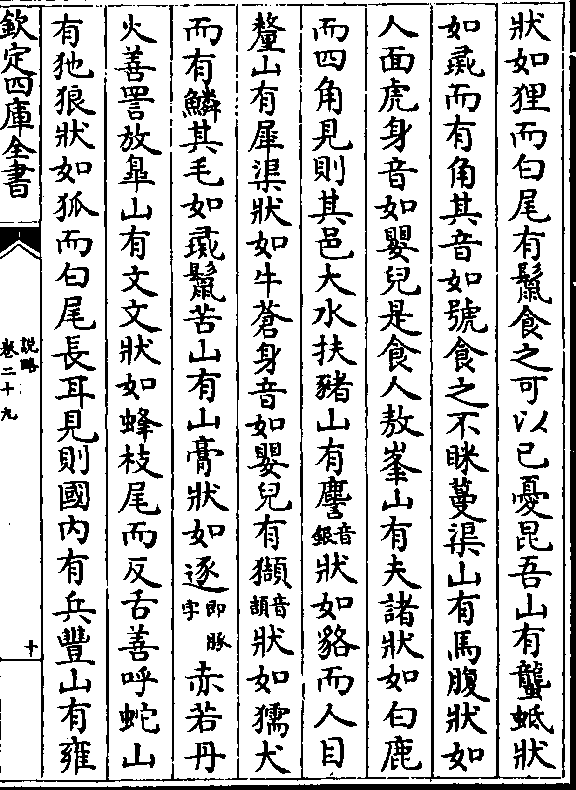 狀如狸而白尾有鬛食之可以已憂昆吾山有蠪蚳狀
如彘而有角其音如號食之不眯蔓渠山有馬腹狀如
人面虎身音如嬰兒是食人敖峯山有夫諸狀如白鹿
而四角見則其邑大水扶豬山有䴦音銀狀如貉而人目
釐山有犀渠狀如牛蒼身音如嬰兒有獺音頡狀如獳犬
而有鱗其毛如彘鬛苦山有山膏狀如逐即豚字赤若丹
火善詈放臯山有文文狀如蜂枝尾而反舌善呼蛇山
有㹢狼狀如狐而白尾長耳見則國內有兵豐山有雍
欽定四庫全書
說略
卷二十九
十